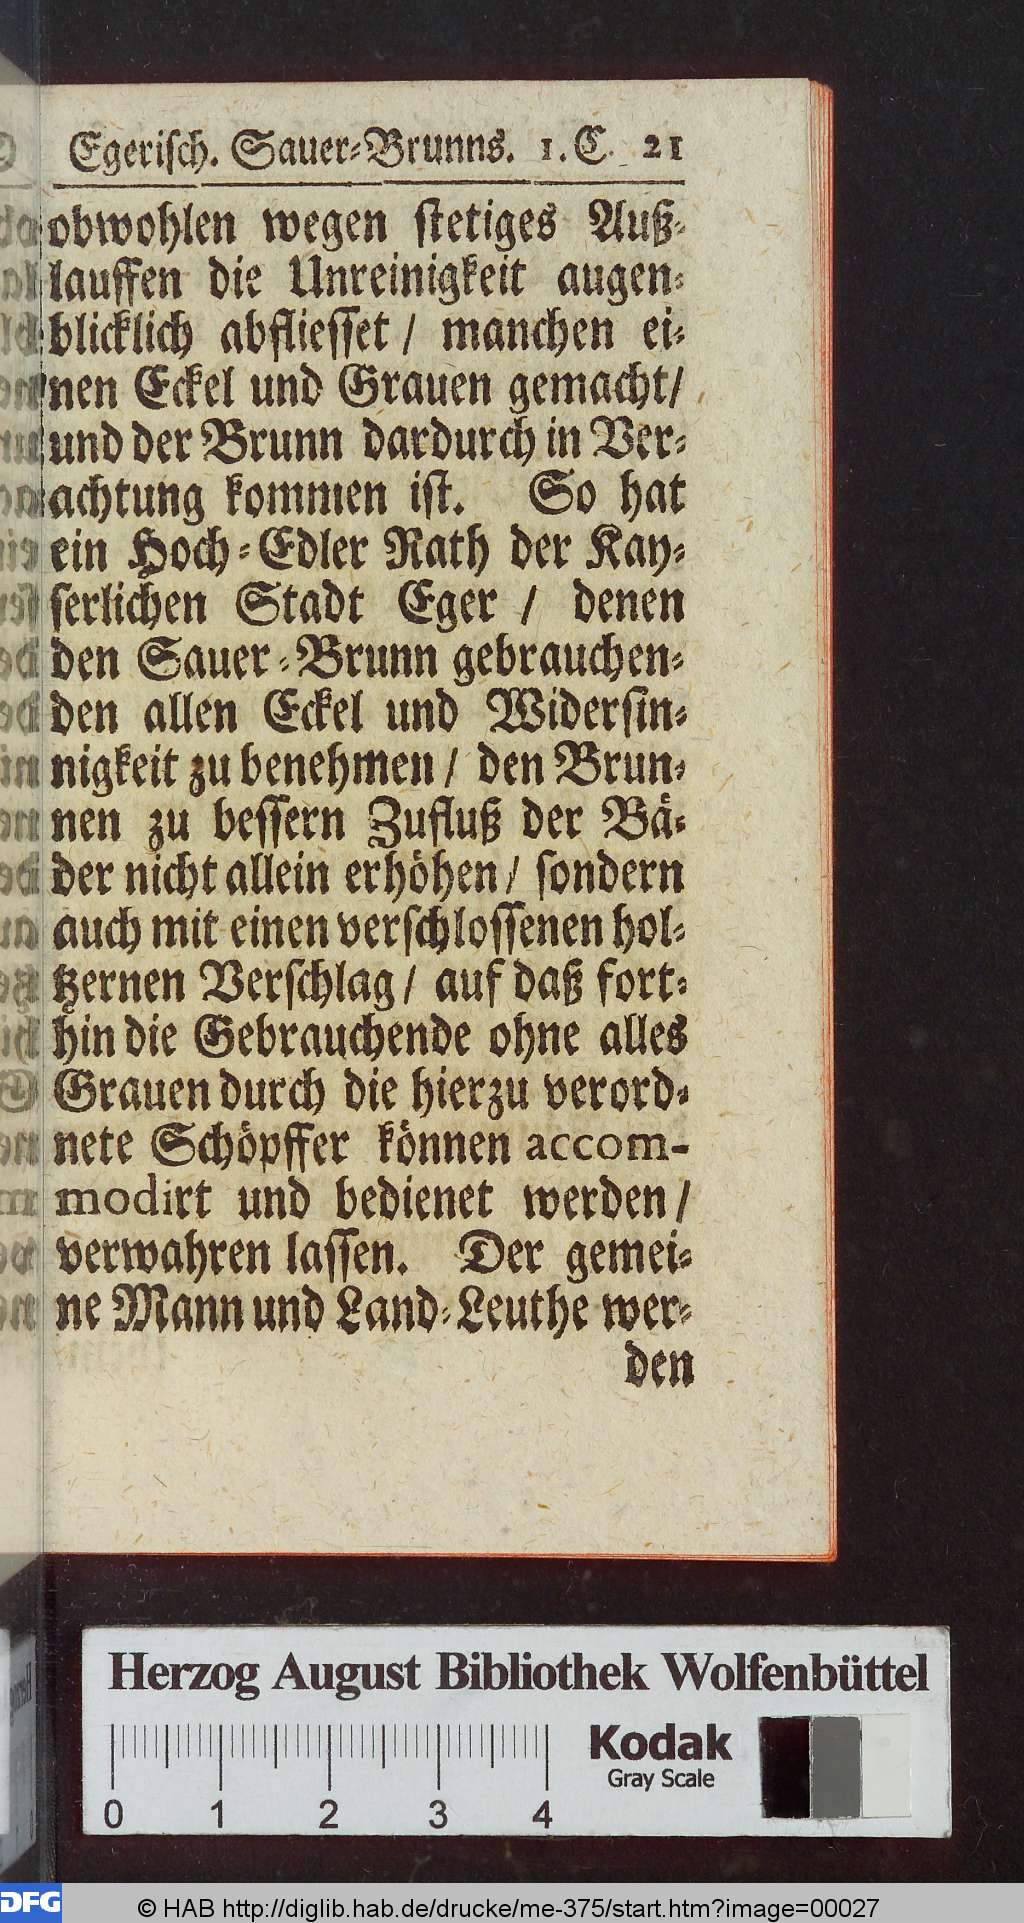 Egerisch. Sauer-Brunns. 1. C. 21
obwohlen wegen stetiges Auß-
lauffen die Unreinigkeit augen-
blicklich abfliesset / manchen ei-
nen Eckel und Grauen gemacht /
und der Brunn dardurch in Ver-
achtung kommen ist. So hat
ein Hoch-Edler Rath der Kay-
serlichen Stadt Eger / denen
den Sauer-Brunn gebrauchen-
den allen Eckel und Widersin-
nigkeit zu benehmen / den Brun-
nen zu bessern Zufluß der Bä-
der nicht allein erhöhen / sondern
auch mit einen verschlossenen hol-
tzernen Verschlag / auf daß fort-
hin die Gebrauchende ohne alles
Grauen durch die hierzu verord-
nete Schöpffer können accom-
modirt und bedienet werden /
verwahren lassen. Der gemei-
ne Mann und Land-Leuthe wer-
den
Herzog August Bibliothek Wolfenbüttel
Kodak
Gray Scale
0 1 2 3 4
DFG
© HAB http://diglib.hab.de/drucke/me-375/start.htm?image=00027